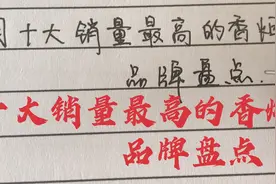 十大销量最高的香
品牌盘点
十大销量最高的香
品牌盘点